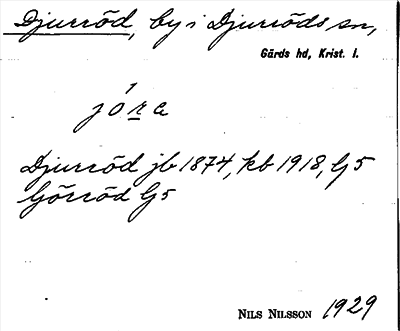 Djurröd, by i Djurröds sn,
Gärds hd, Krist. l.
jóra
Djurröd jb 1874, kb 1918, G5
Görröd G5
NILS NILSSON 1929